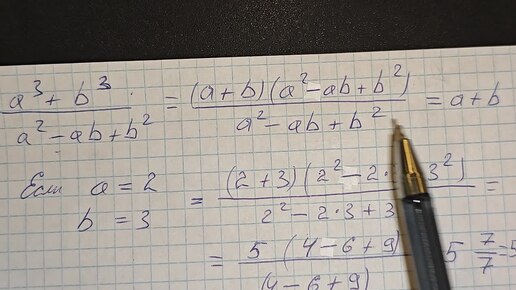 (a³ + b³)/(a² − ab + b²) = ((a + b)(a² − ab + b²))/(a² − ab + b²) = a + b
Если a = 2
b = 3
= ((2 + 3)(2² − 2 · 3²))/(2² − 2·3 + 3 =
= (5 (4 − 6 + 9))/((4 − 6 + 9)) 5 7/7 = 5